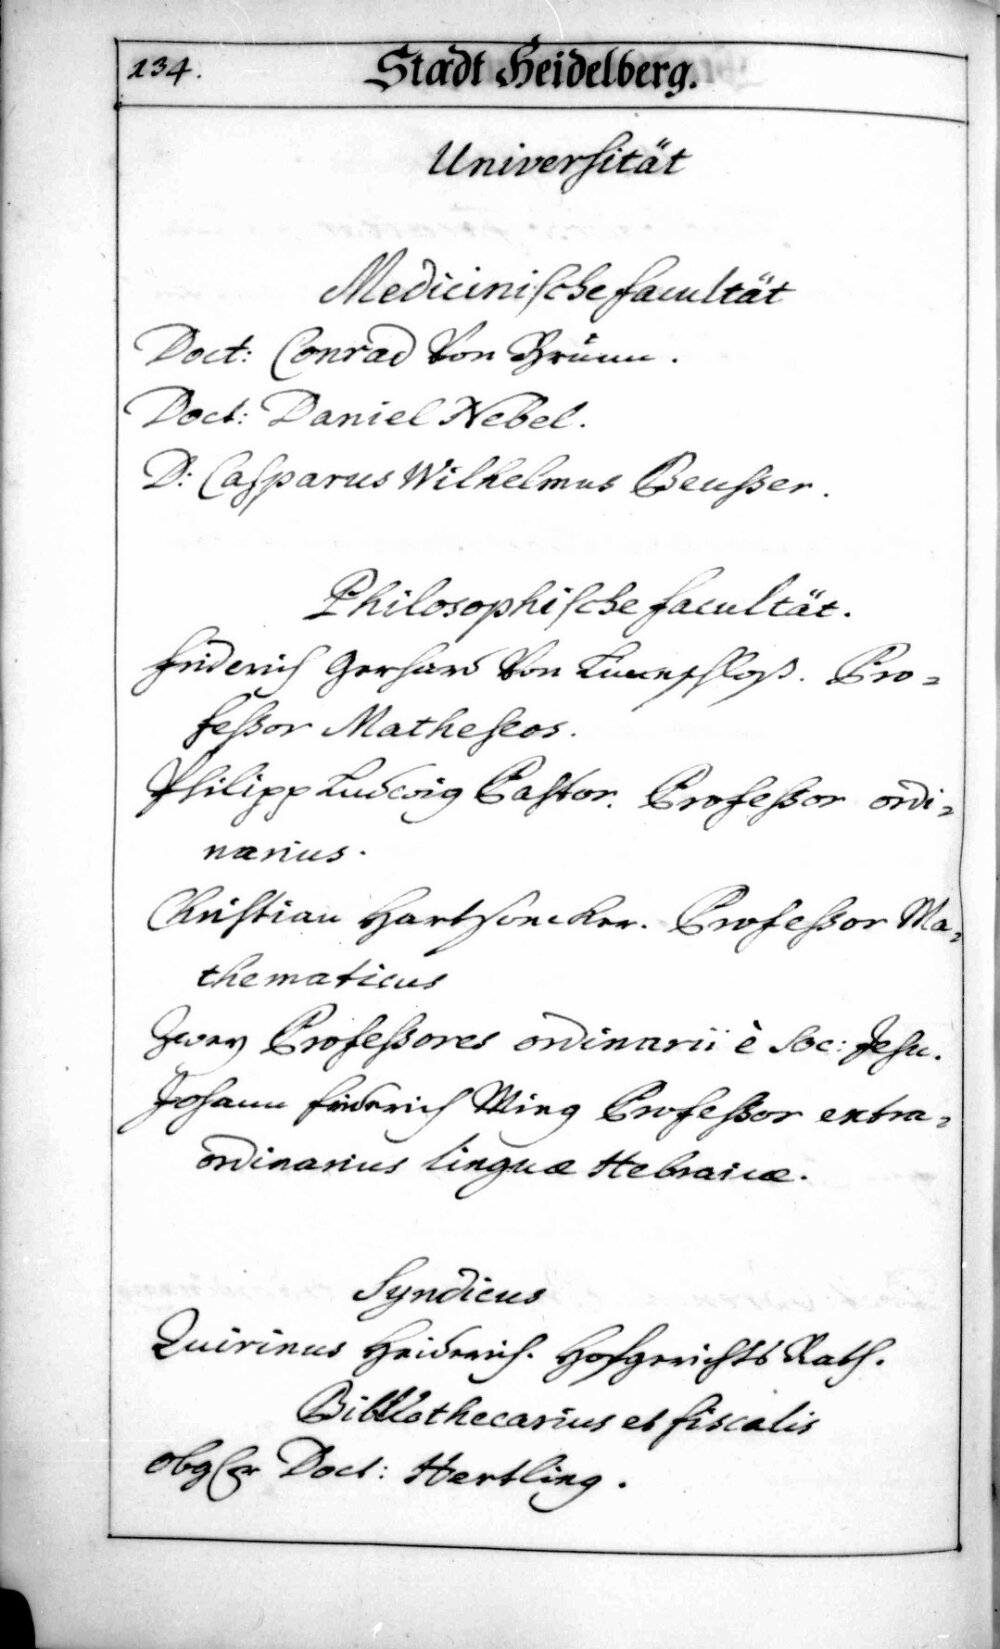 134.
Stadt Heidelberg.
Universität
Medicinische facultät
Doct: Conrad Von Brünn.
Doct: Daniel Nebel.
D: Casparus Wilhelmus Beusser.
Philosophische facultät.
friderich Gerhard Von Lünesschloß. Pro=
fessor Matheseos.
Philipp Ludwig Pastor. Professor ordi=
narius.
Christian Hartsoecker. Professor Ma=
thematicus
Zwey Professores ordinarii è Soc: Jesu.
Johann friderich Wing Professor extra=
ordinarius linguæ Hebraicæ.
Syndicus
Quirinus Heiderich. Hofgerichts Rath.
Bibliothecarius et fiscalis
obgr Doct: Hertling.